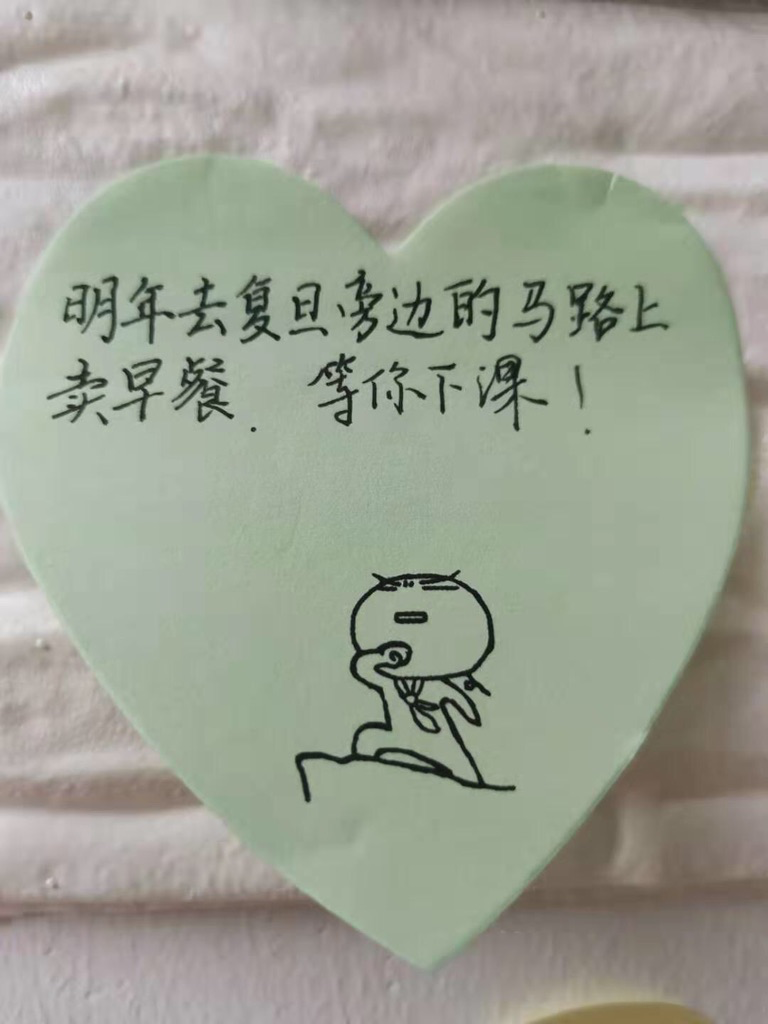 明年去复旦旁边的马路上
卖早餐. 等你下课!